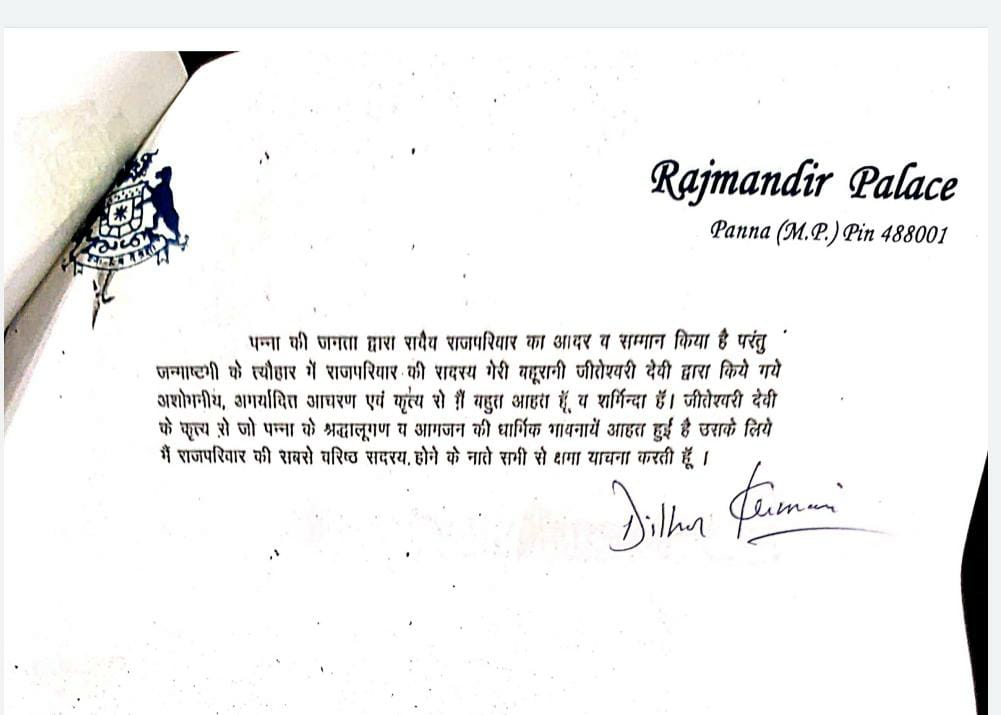 Rajmandir Palace
Panna (M.P.) Pin 488001
पन्ना की जनता द्वारा सदैव राजपरिवार का आदर व सम्मान किया है परंतु
जन्माष्टमी के त्यौहार में राजपरिवार की सदस्य मेरी बहूरानी जीतेश्वरी देवी द्वारा किये गये
अशोभनीय, अमर्यादित आचरण एवं कृत्य से मैं बहुत आहत हूँ व शर्मिन्दा हूँ। जीतेश्वरी देवी
के कृत्य से जो पन्ना के श्रद्धालूगण व आमजन की धार्मिक भावनायें आहत हुई है उसके लिये
मैं राजपरिवार की सबसे वरिष्ठ सदस्य होने के नाते सभी से क्षमा याचना करती हूँ ।
Kumari